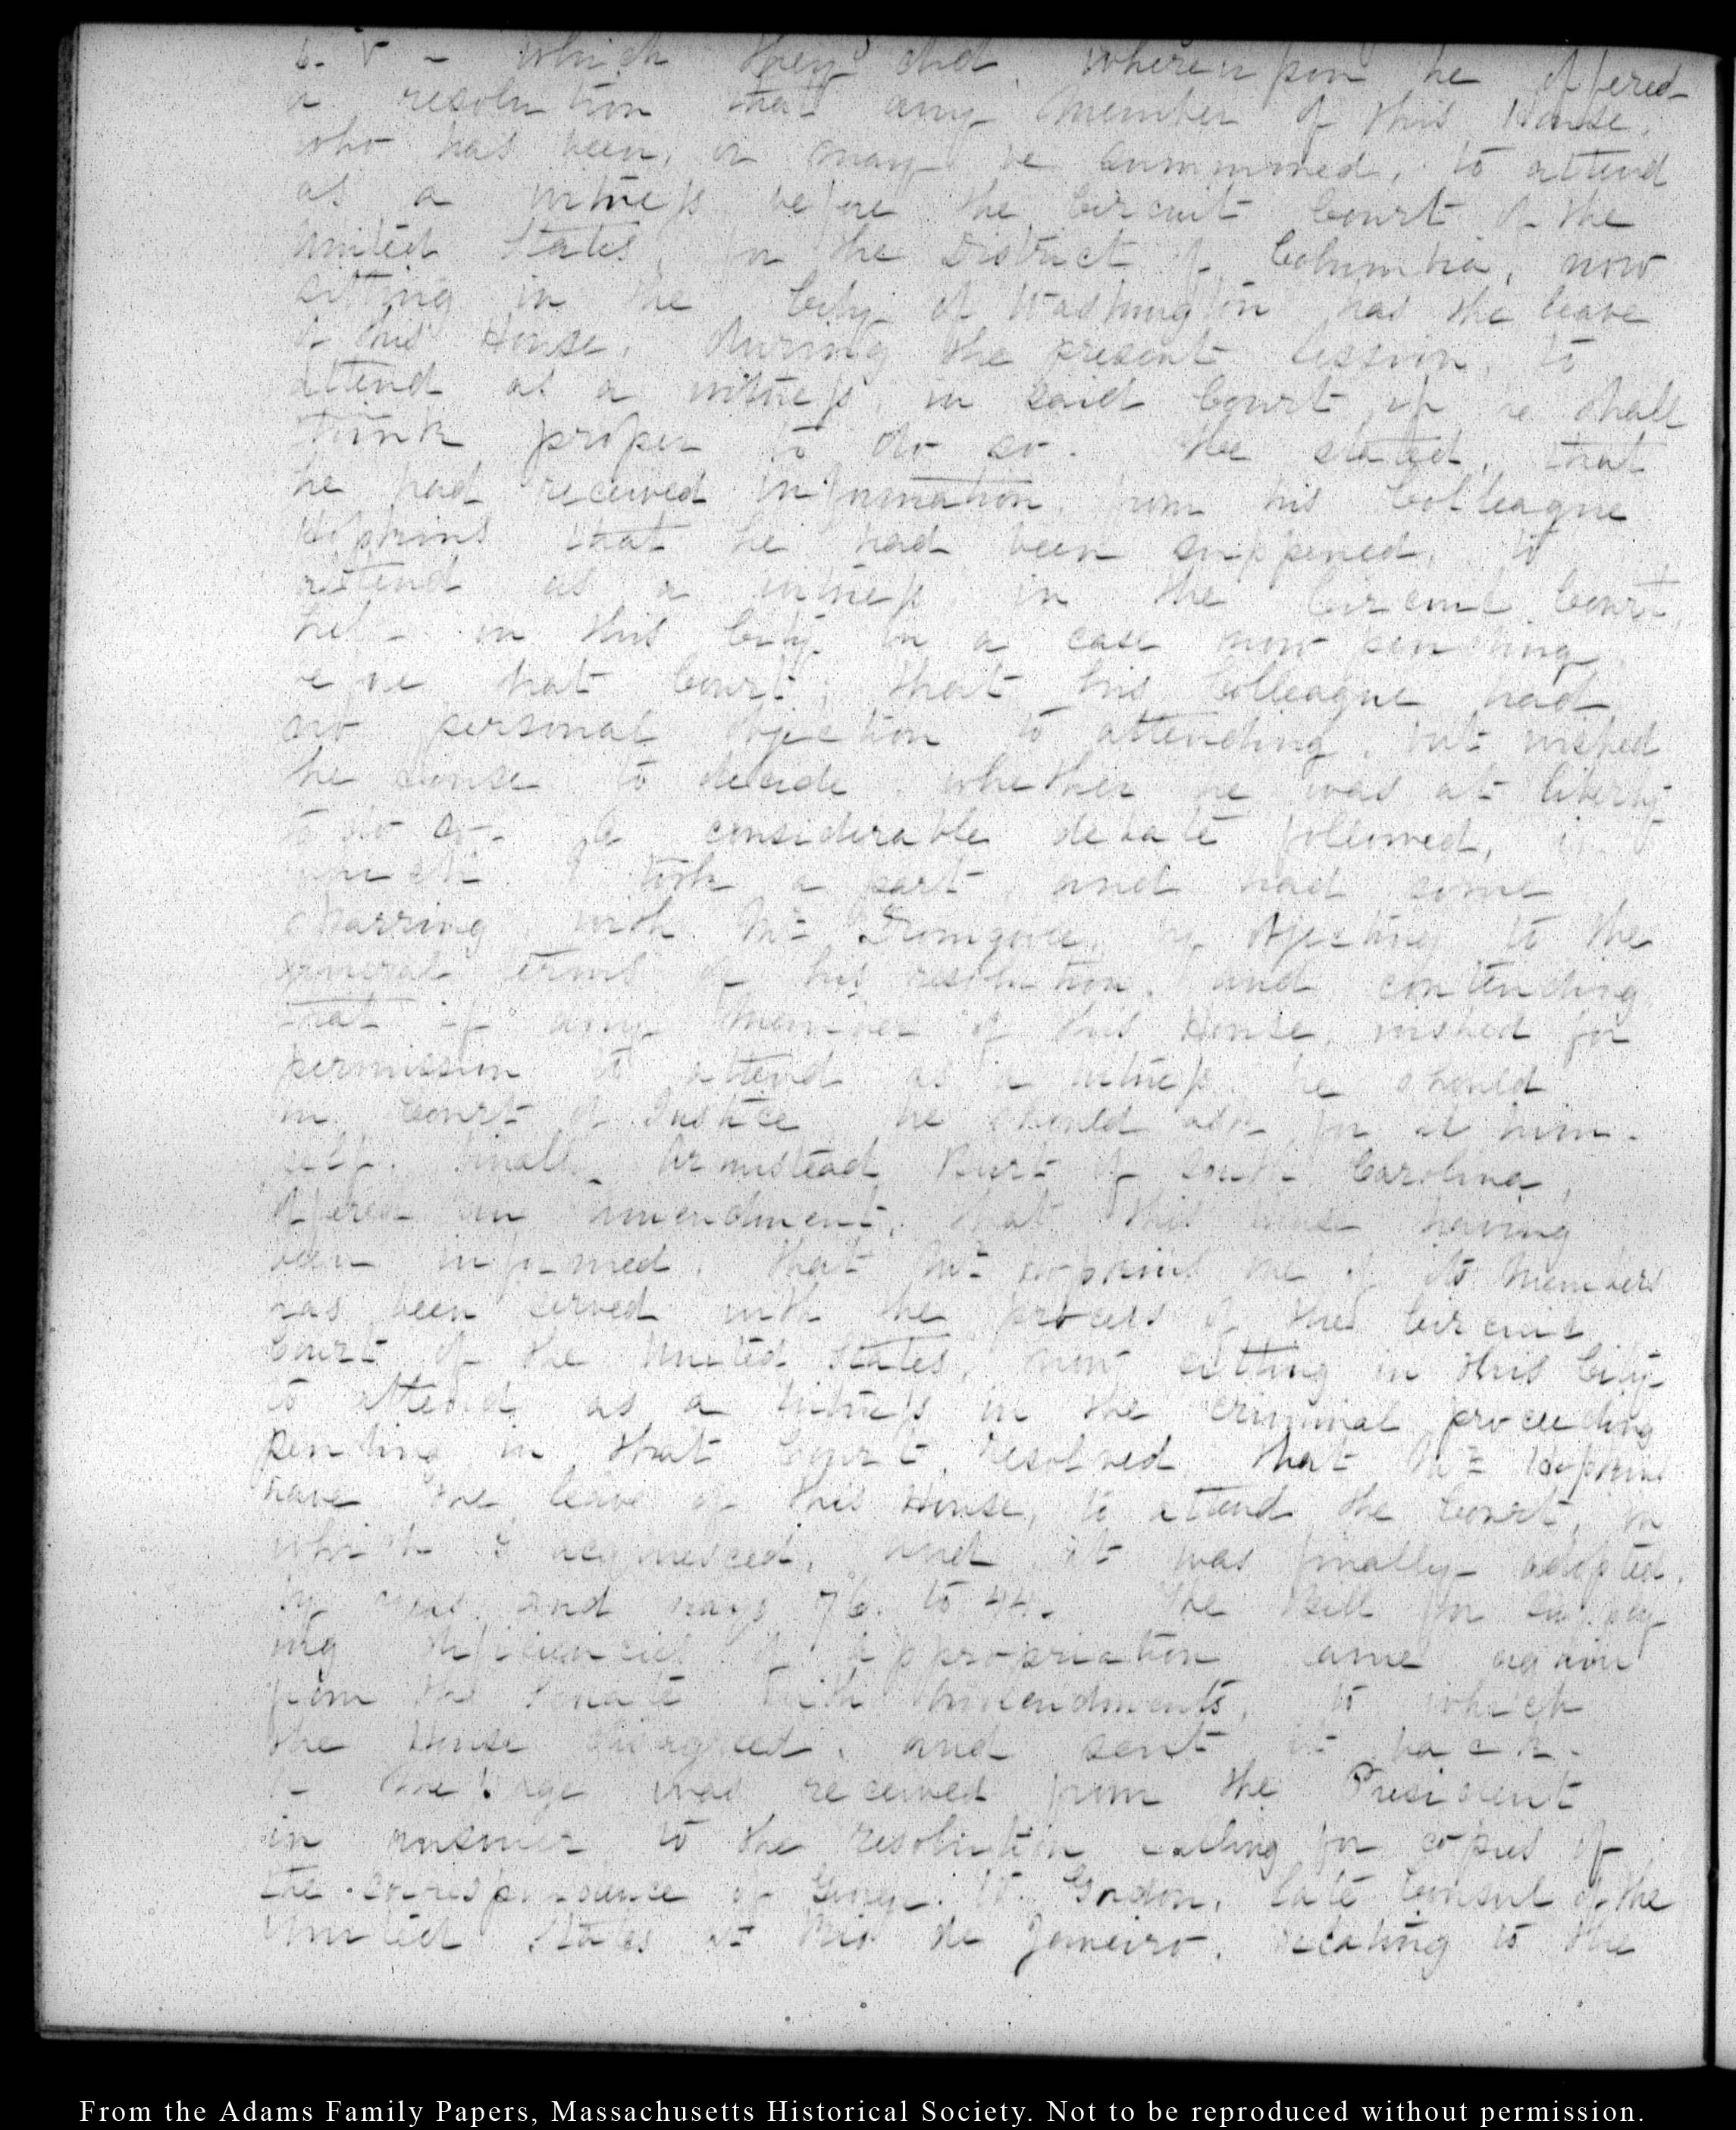 which they did. whereupon he offered
a resolution that any member of this House,
who has been, or may be summoned, to attend
as a witness before the Circuit Court of the
United States, for the District of Columbia, now
sitting in the City of Washington has the leave
of this House, during the present session, to
attend as a witness, in said Court, if he shall
think proper to do so. He stated, that
he had received information, from his Colleague
Hopkins that he had been suppened, to
attend as a witness in the Circuit Court,
held in this City in a case now pending
before that Court; that his Colleague had
no personal objection to attending, but wished
the House to decide whether he was at liberty
to do so. A considerable debate followed, in
which I took a part, and had some
sparring with Mr. Dromgoole, by objecting to the
general terms of his resolution, and contending
that if any Member of this House, wished for
permission to attend as a witness he should
in Court of Justice he should ask for it him-
self. Finally Armistead Burt of South Carolina,
offered an amendment, that this House having
been informed, that Mr. Hopkins one of its Members
has been served with the process of the Circuit
Court of the United States, now sitting in this City
to attend as a witness in the criminal proceeding
pending in that Court, resolved that Mr. Hopkins
have the leave of this House, to attend the Court, in
which I acquiesced, and it was finally adopted,
by yeas and nays 76. to 44. The Bill for supply-
ing deficiencies of appropriation came again
from the Senate with Amendments, to which
the House disagreed, and sent it back.
A Message was received from the President
in answer to the resolution calling for copies of
the correspondence of George W. Gordon, late Consul of the
United States at Rio de Janeiro, relating to the
From the Adams Family Papers, Massachusetts Historical Society. Not to be reproduced without permission.